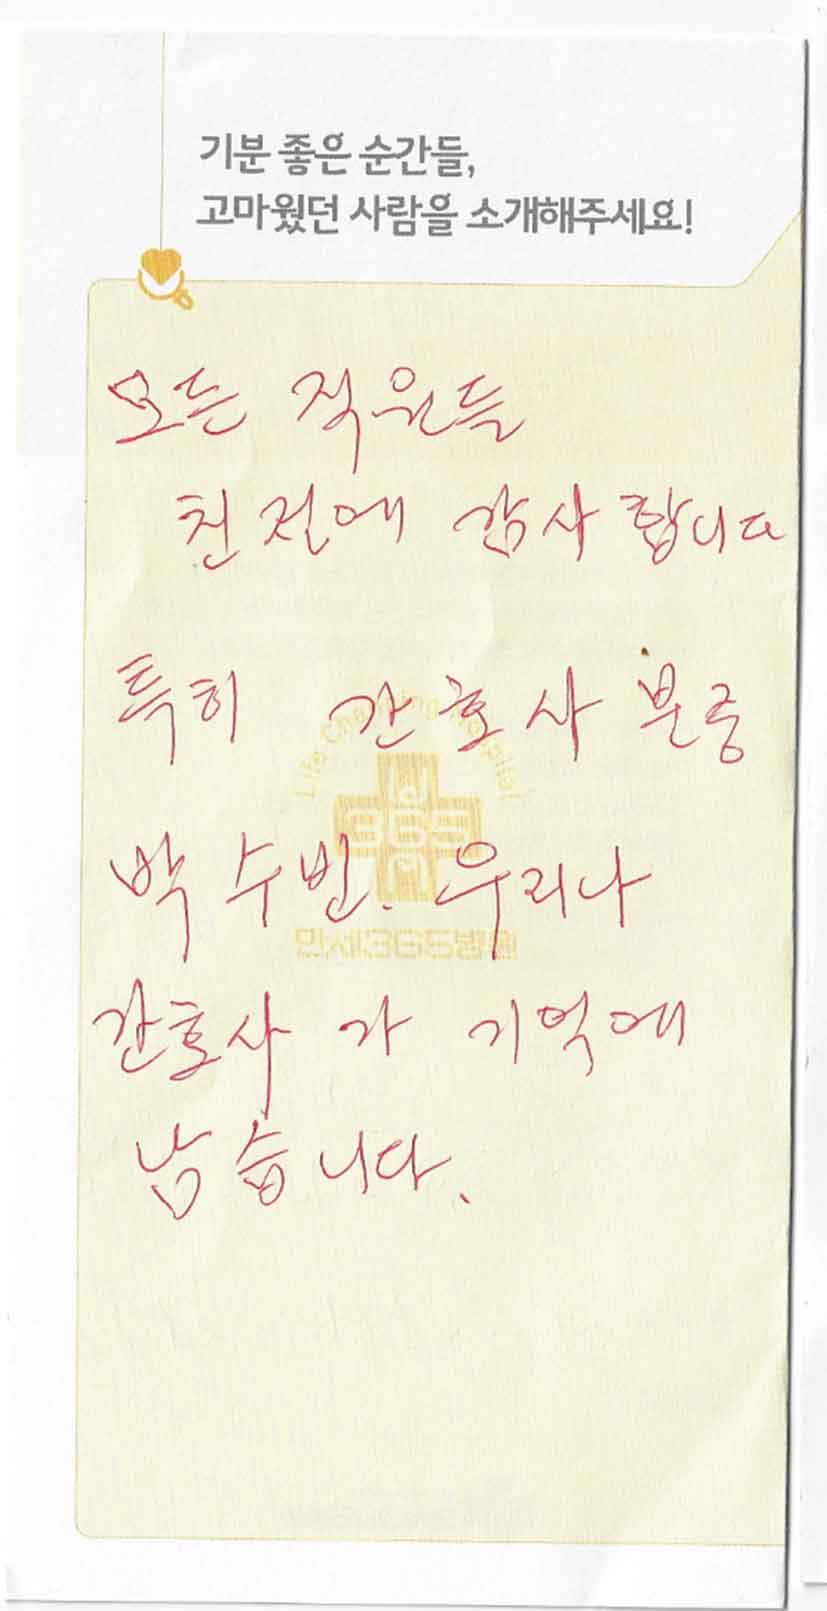 기분 좋은 순간들,
고마웠던 사람을 소개해주세요!
모든 직원들
친절에 감사 합니다
특히 간호사 분중
Life Changing Hospital
365
박수빈. 우리나
만세365병원
간호사 가 기억에
남습니다.